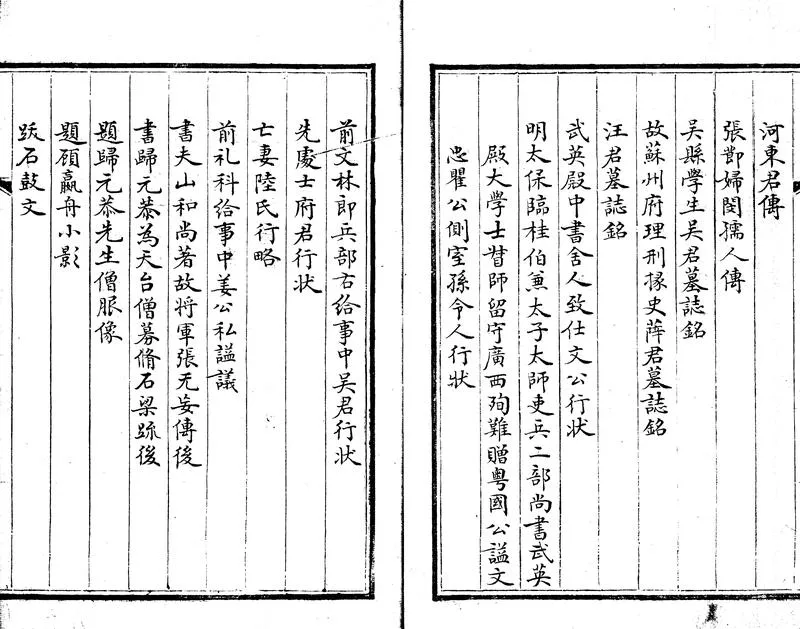 河東君傳
張節婦閔孺人傳
吳縣學生吳君墓誌銘
故蘇州府理刑掾史薛君墓誌銘
汪君墓誌銘
武英殿中書舍人致仕文公行狀
明太保臨桂伯兼太子太師吏兵二部尚書武英
殿大學士督師留守廣西殉難贈粤國公諡文
忠瞿公側室孫令人行狀
前文林郎兵部右給事中吳君行狀
先處士府君行狀
亡妻陸氏行略
前礼科給事中姜公私謚議
書夫山和尚著故將軍張无妄傳後
書歸元恭為天台僧募脩石梁疏後
題歸元恭先生僧服像
題顧贏舟小影
跋石鼓文